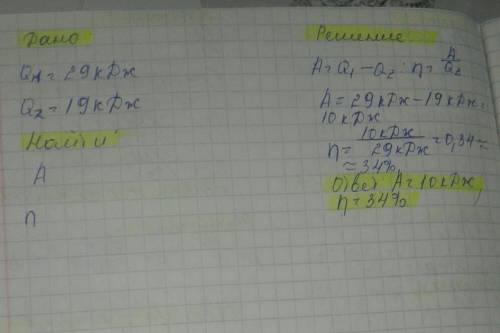 Дано
Q1 = 29 кДж
Q2 = 19 кДж
Найти:
A
η
Решение
A = Q1 - Q2 η = A/Q2
A = 29 кДж - 19 кДж =
10 кДж
η = 10 кДж/29 кДж = 0,34 ≈
≈ 34%
Ответ A = 10 кДж,
η = 34%